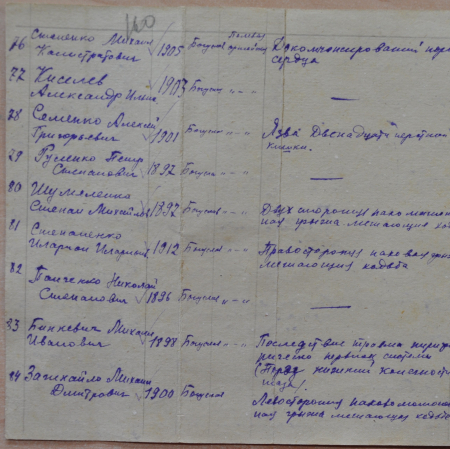 160
76 Степаненко Михаил
Калистратович 1905 Богуслав Декомпенсированный порок
сердца
77 Киселев
Александр Ильич 1903 Богуслав „ „ —
78 Семенко Алексей
Григорьевич 1901 Богуслав „ „ Язва двенадцати перстной
кишки.
79 Руденко Петр
Степанович 1892 Богуслав „ „ —
80 Шумейко
Степан Михайлов 1897 Богуслав „ „ Двух сторонняя пахо мошоноч
ная грыжа мешающая ходьбе
81 Степаненко
Иларион Иларион 1912 Богуслав „ „ Правосторонняя паховая грыжа
мешающая ходьбе
82 Панченко Николай
Степанович 1896 Богуслав „ „ —
83 Бинкевич Михаил
Иванович 1898 Богуслав „ „ Последствие травмы перифе
рической нервной системы
нижней конечности
84 Михаил
Дмитрович 1900 Богуслав
Левосторонняя пахово мошоноч
ная грыжа мешающая ходьбе